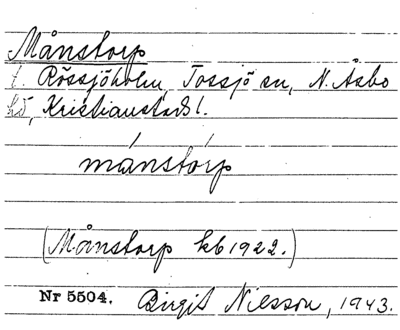 Månstorp
t. Rössjöholm, Tossjö sn, N. Åsbo
hd, Kristianstads l.
mánstórp
(Månstorp kb 1922.)
Nr 5504. Birgit Nilsson, 1943.